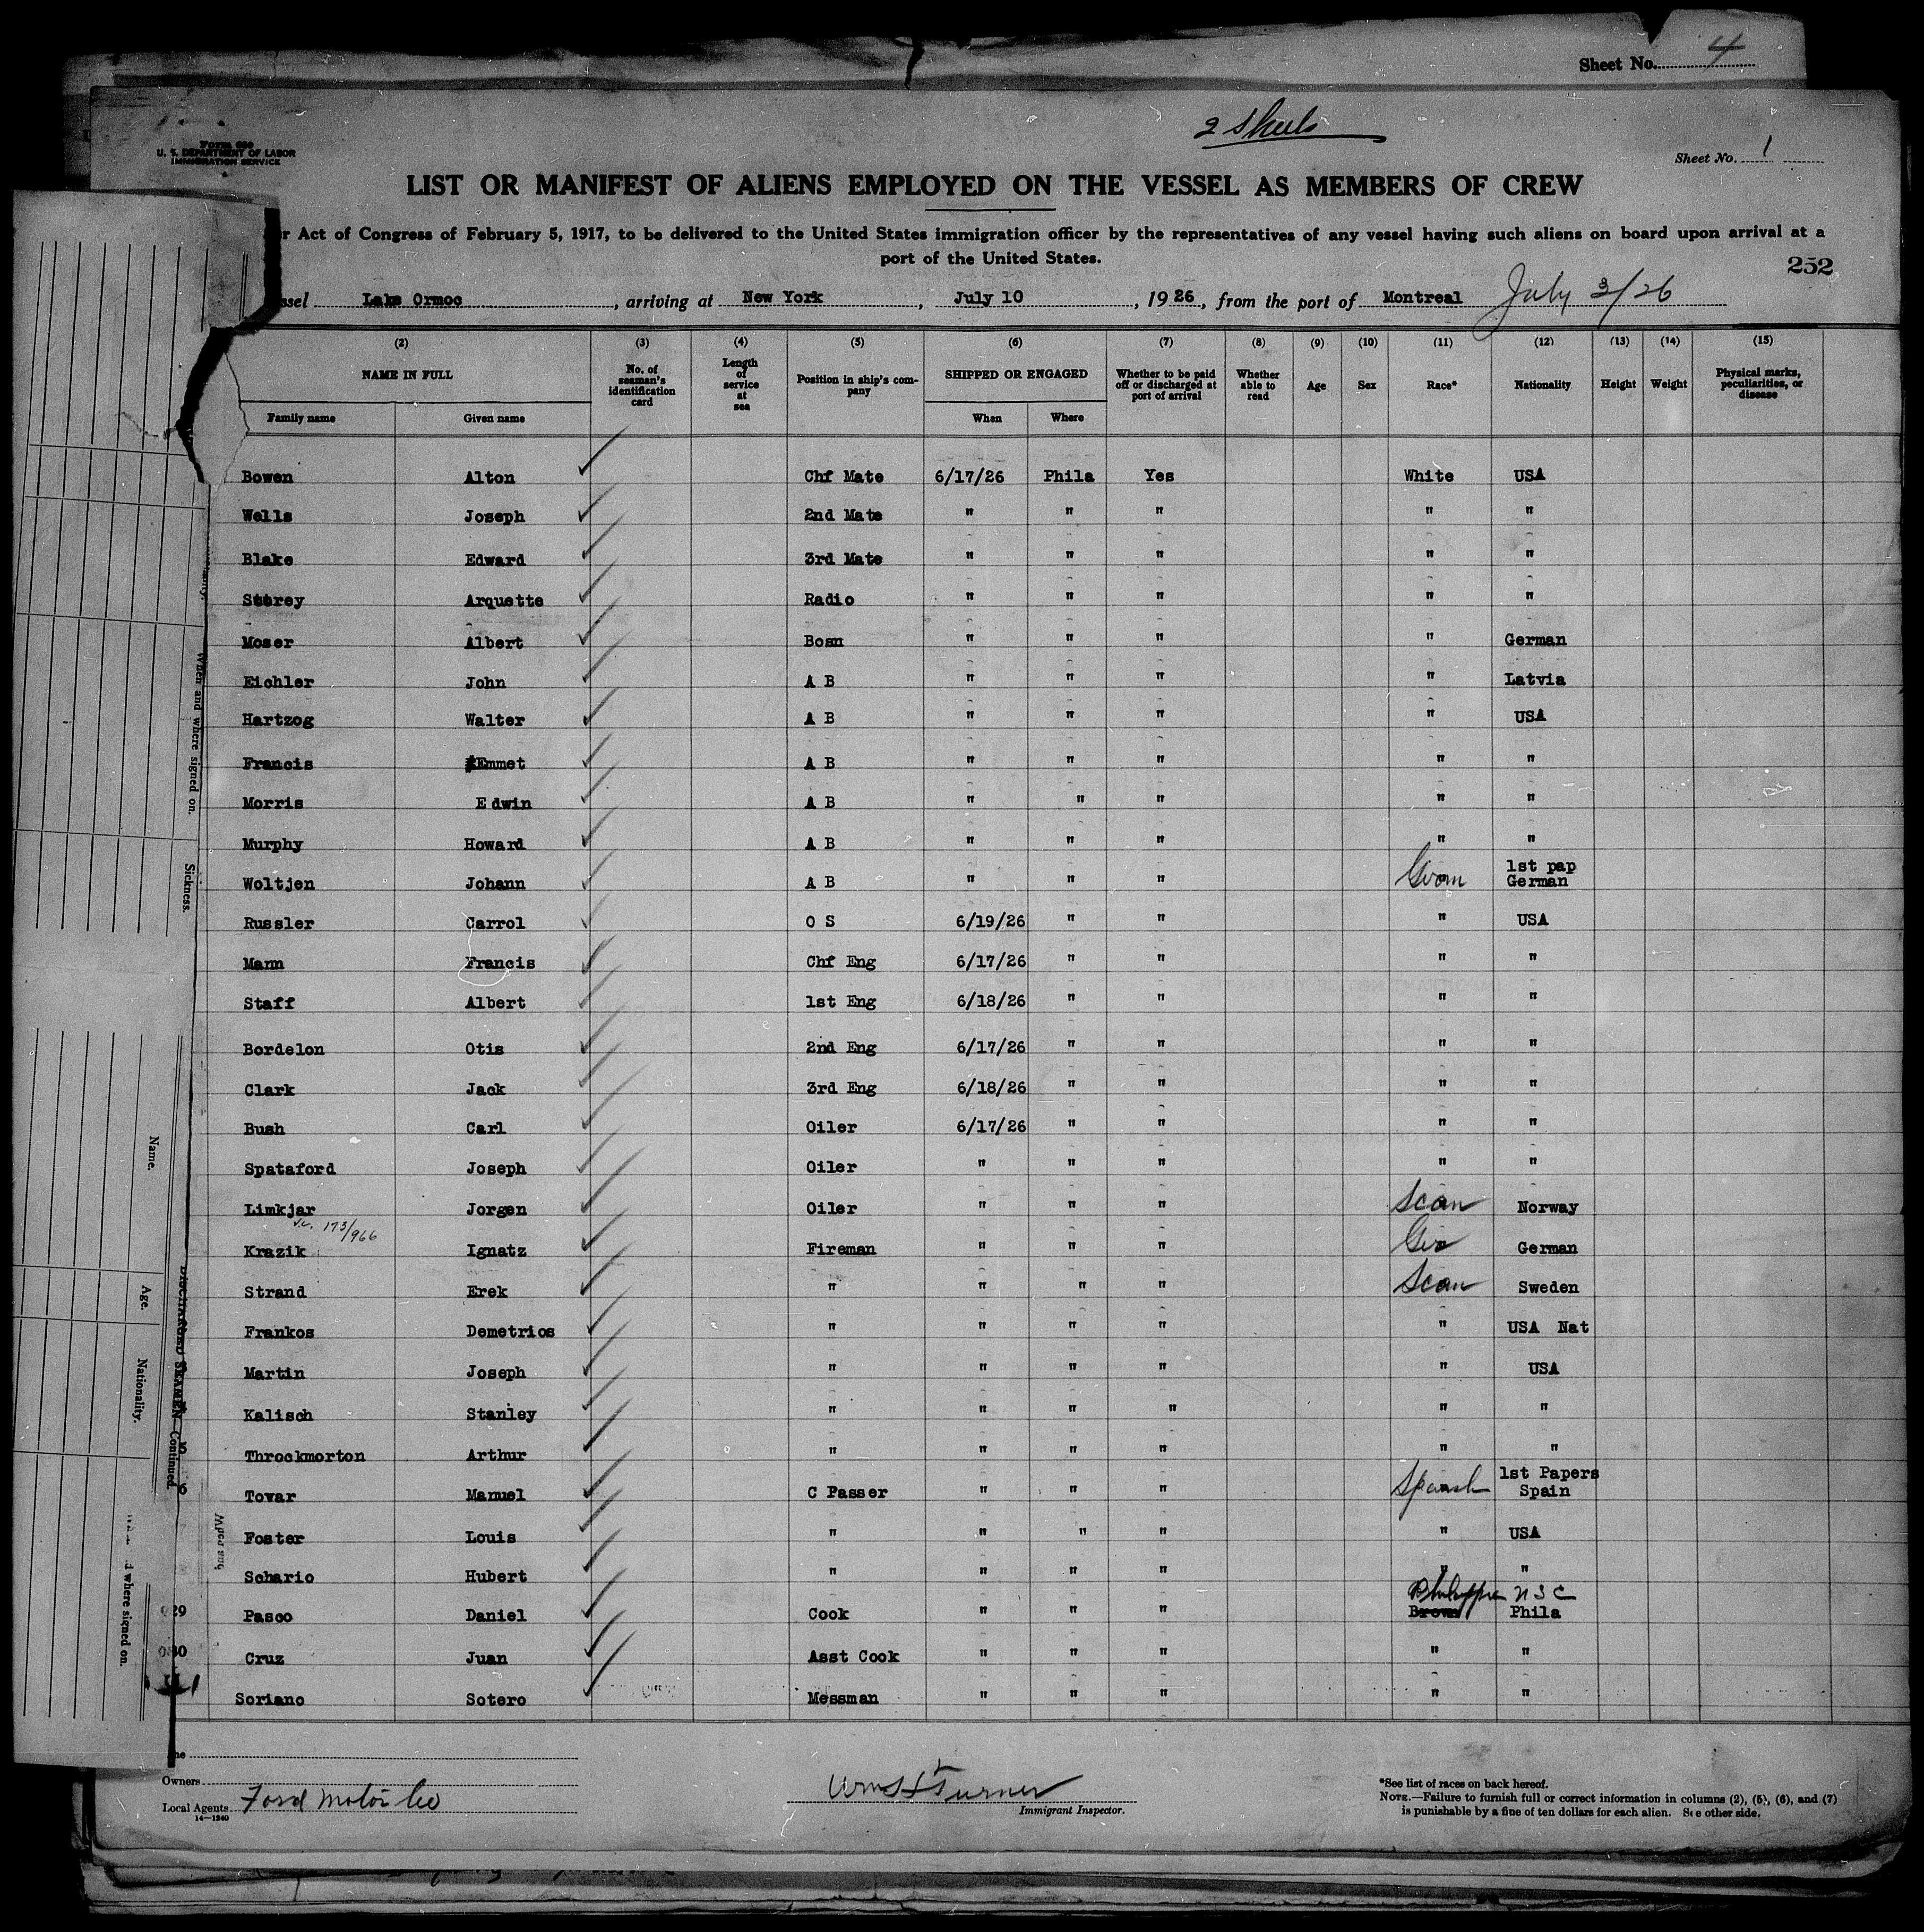 Sheet No. 4
2 Sheets
Form 680
U. S. DEPARTMENT OF LABOR
IMMIGRATION SERVICE
Sheet No. 1
LIST OR MANIFEST OF ALIENS EMPLOYED ON THE VESSEL AS MEMBERS OF CREW
r Act of Congress of February 5, 1917, to be delivered to the United States immigration officer by the representatives of any vessel having such aliens on board upon arrival at a
port of the United States.
252
ssel Lake Ormoc, arriving at New York, July 10, 1926, from the port of Montreal July 3/26
(2) (3) (4) (5) (6) (7) (8) (9) (10) (11) (12) (13) (14) (15)
NAME IN FULL No. of seaman's identification card Length of service at sea Position in ship's company SHIPPED OR ENGAGED Whether to be paid off or discharged at port of arrival Whether able to read Age Sex Race* Nationality Height Weight Physical marks, peculiarities, or disease
Family name Given name When Where
Bowen Alton Chf Mate 6/17/26 Phila Yes White USA
Wells Joseph 2nd Mate " " " " "
Blake Edward 3rd Mate " " " " "
Storey Arquette Radio " " " " "
Moser Albert Bosn " " " " German
Eichler John A B " " " " Latvia
Hartzog Walter A B " " " " USA
Francis Emmet A B " " " " "
Morris Edwin A B " " " " "
Murphy Howard A B " " " " "
Woltjen Johann A B " " " Germ 1st pap German
Russler Carrol O S 6/19/26 " " " USA
Mann Francis Chf Eng 6/17/26 " " " "
Staff Albert 1st Eng 6/18/26 " " " "
Bordelon Otis 2nd Eng 6/17/26 " " " "
Clark Jack 3rd Eng 6/18/26 " " " "
Bush Carl Oiler 6/17/26 " " " "
Spataford Joseph Oiler " " " " "
Limkjar Jorgen Oiler " " " Scan Norway
173/966
Krazik Ignatz Fireman " " " Ger German
Strand Erek " " " " Scan Sweden
Frankos Demetrios " " " " " USA Nat
Martin Joseph " " " " " USA
Kalisch Stanley " " " " " "
Throckmorton Arthur " " " " " "
Tovar Manuel C Passer " " " Spanish 1st Papers Spain
Foster Louis " " " " " USA
Schario Hubert " " " " " "
Philippine N S C
29 Pasco Daniel Cook " " " Brown Phila
30 Cruz Juan Asst Cook " " " " "
Soriano Sotero Messman " " " " "
When and where signed on.
Sickness.
Name.
Age.
Nationality.
d where signed on.
DISCHARGED SEAMEN—Continued
5
6
Owners
Local Agents Ford Motor Co
14—1240
Wm H Turner
Immigrant Inspector.
*See list of races on back hereof.
NOTE.—Failure to furnish full or correct information in columns (2), (5), (6), and (7)
is punishable by a fine of ten dollars for each alien. See other side.